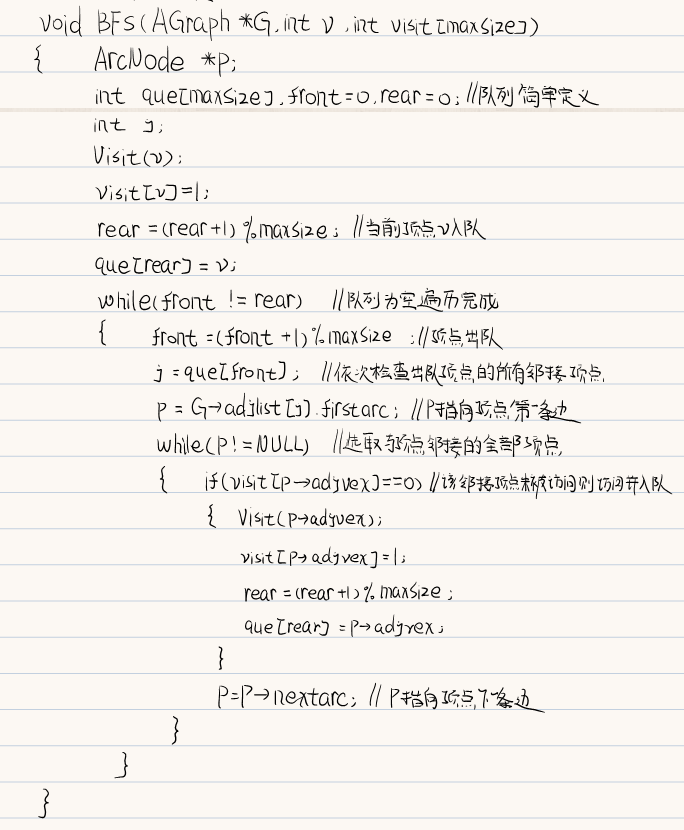 void BFS(AGraph *G,int v,int visit[maxsize])
{ ArcNode *p;
int que[maxsize],front=0,rear=0; //队列简单定义
int j;
Visit(v);
visit[v]=1;
rear=(rear+1)%maxsize; //当前顶点v入队
que[rear]=v;
while(front != rear) //队列为空遍历完成
{ front=(front+1)%maxsize ; //顶点出队
j=que[front]; //依次检查出队顶点的所有邻接顶点
p = G→adjlist[j].firstarc; //P指向顶点第一条边
while(p!=NULL) //选取与顶点邻接的全部顶点
{ if(visit[p→adjvex]==0) //该邻接顶点未被访问则访问并入队
{ Visit(p→adjvex);
visit[p→adjvex]=1;
rear=(rear+1)%maxsize;
que[rear]=p→adjvex;
}
p=p→nextarc; //P指向顶点下条边
}
}
}